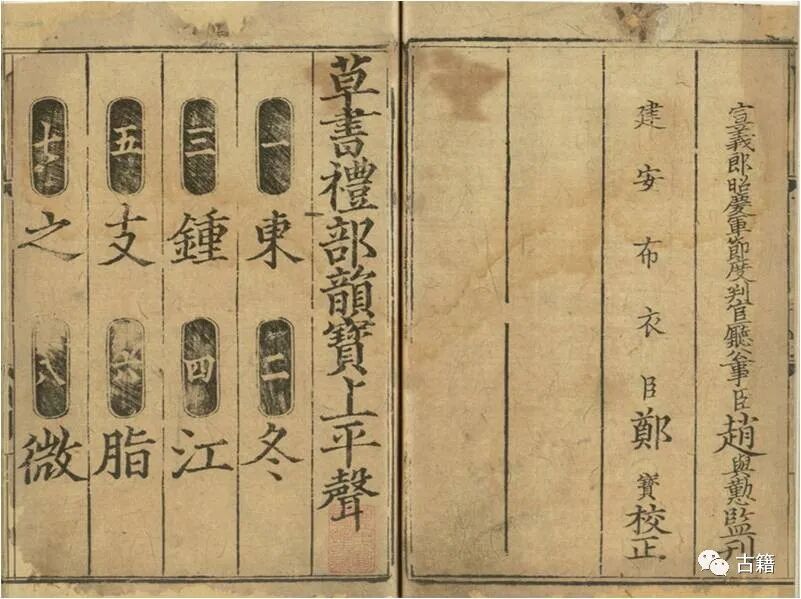 宣義郎昭慶軍節度判官廳公事臣趙與懃監刊
建安布衣臣鄭寶校正
草書禮部韻寶上平聲
一東 二冬
三鍾 四江
五支 六脂
七之 八微
古籍